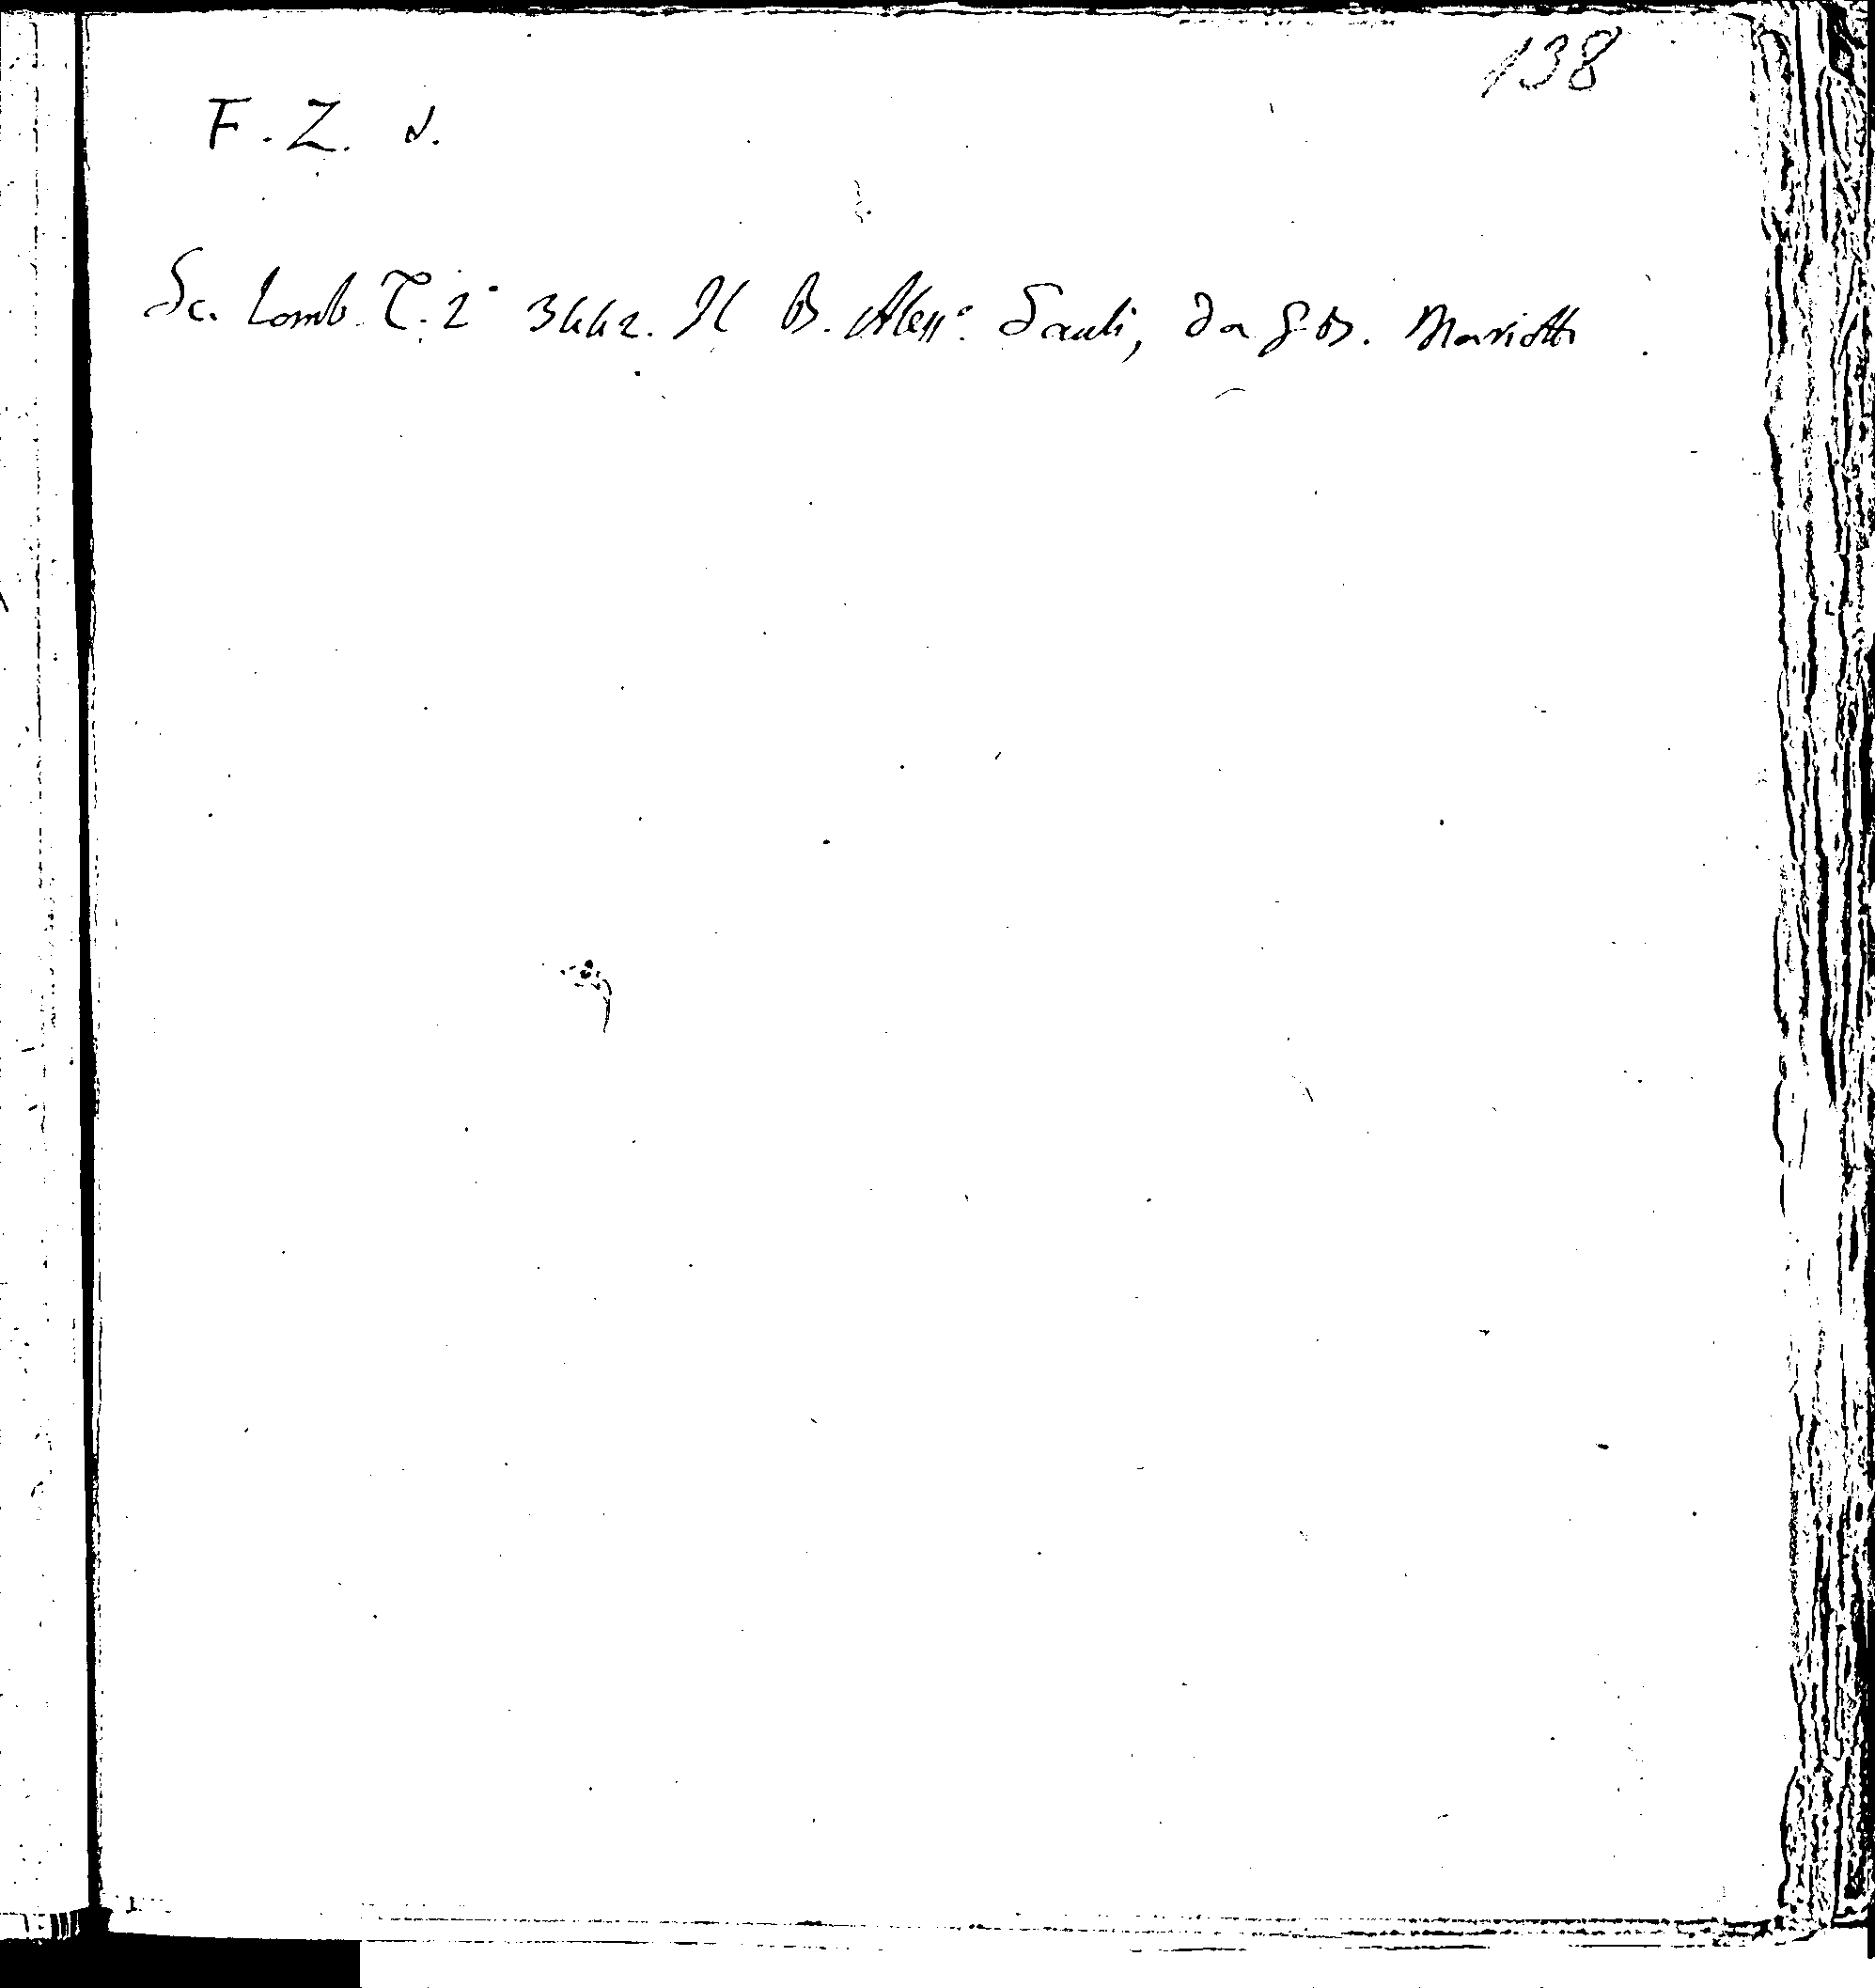 138
F. Z. d.
Sc. Lomb. T. 2° 3442. Il B. Aless°. Sauli, da G B. Mariotti